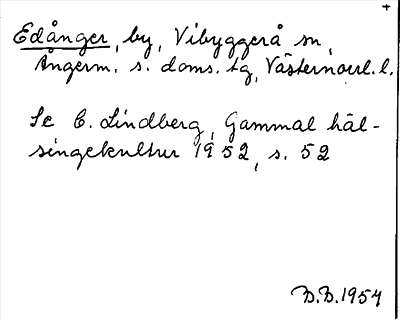 +
Edånger, by, Vibyggerå sn,
Ångerm. s. doms. tg, Västernorrl. l.
Se C. Lindberg, Gammal häl-
singekultur 1952, s. 52
B.B. 1954